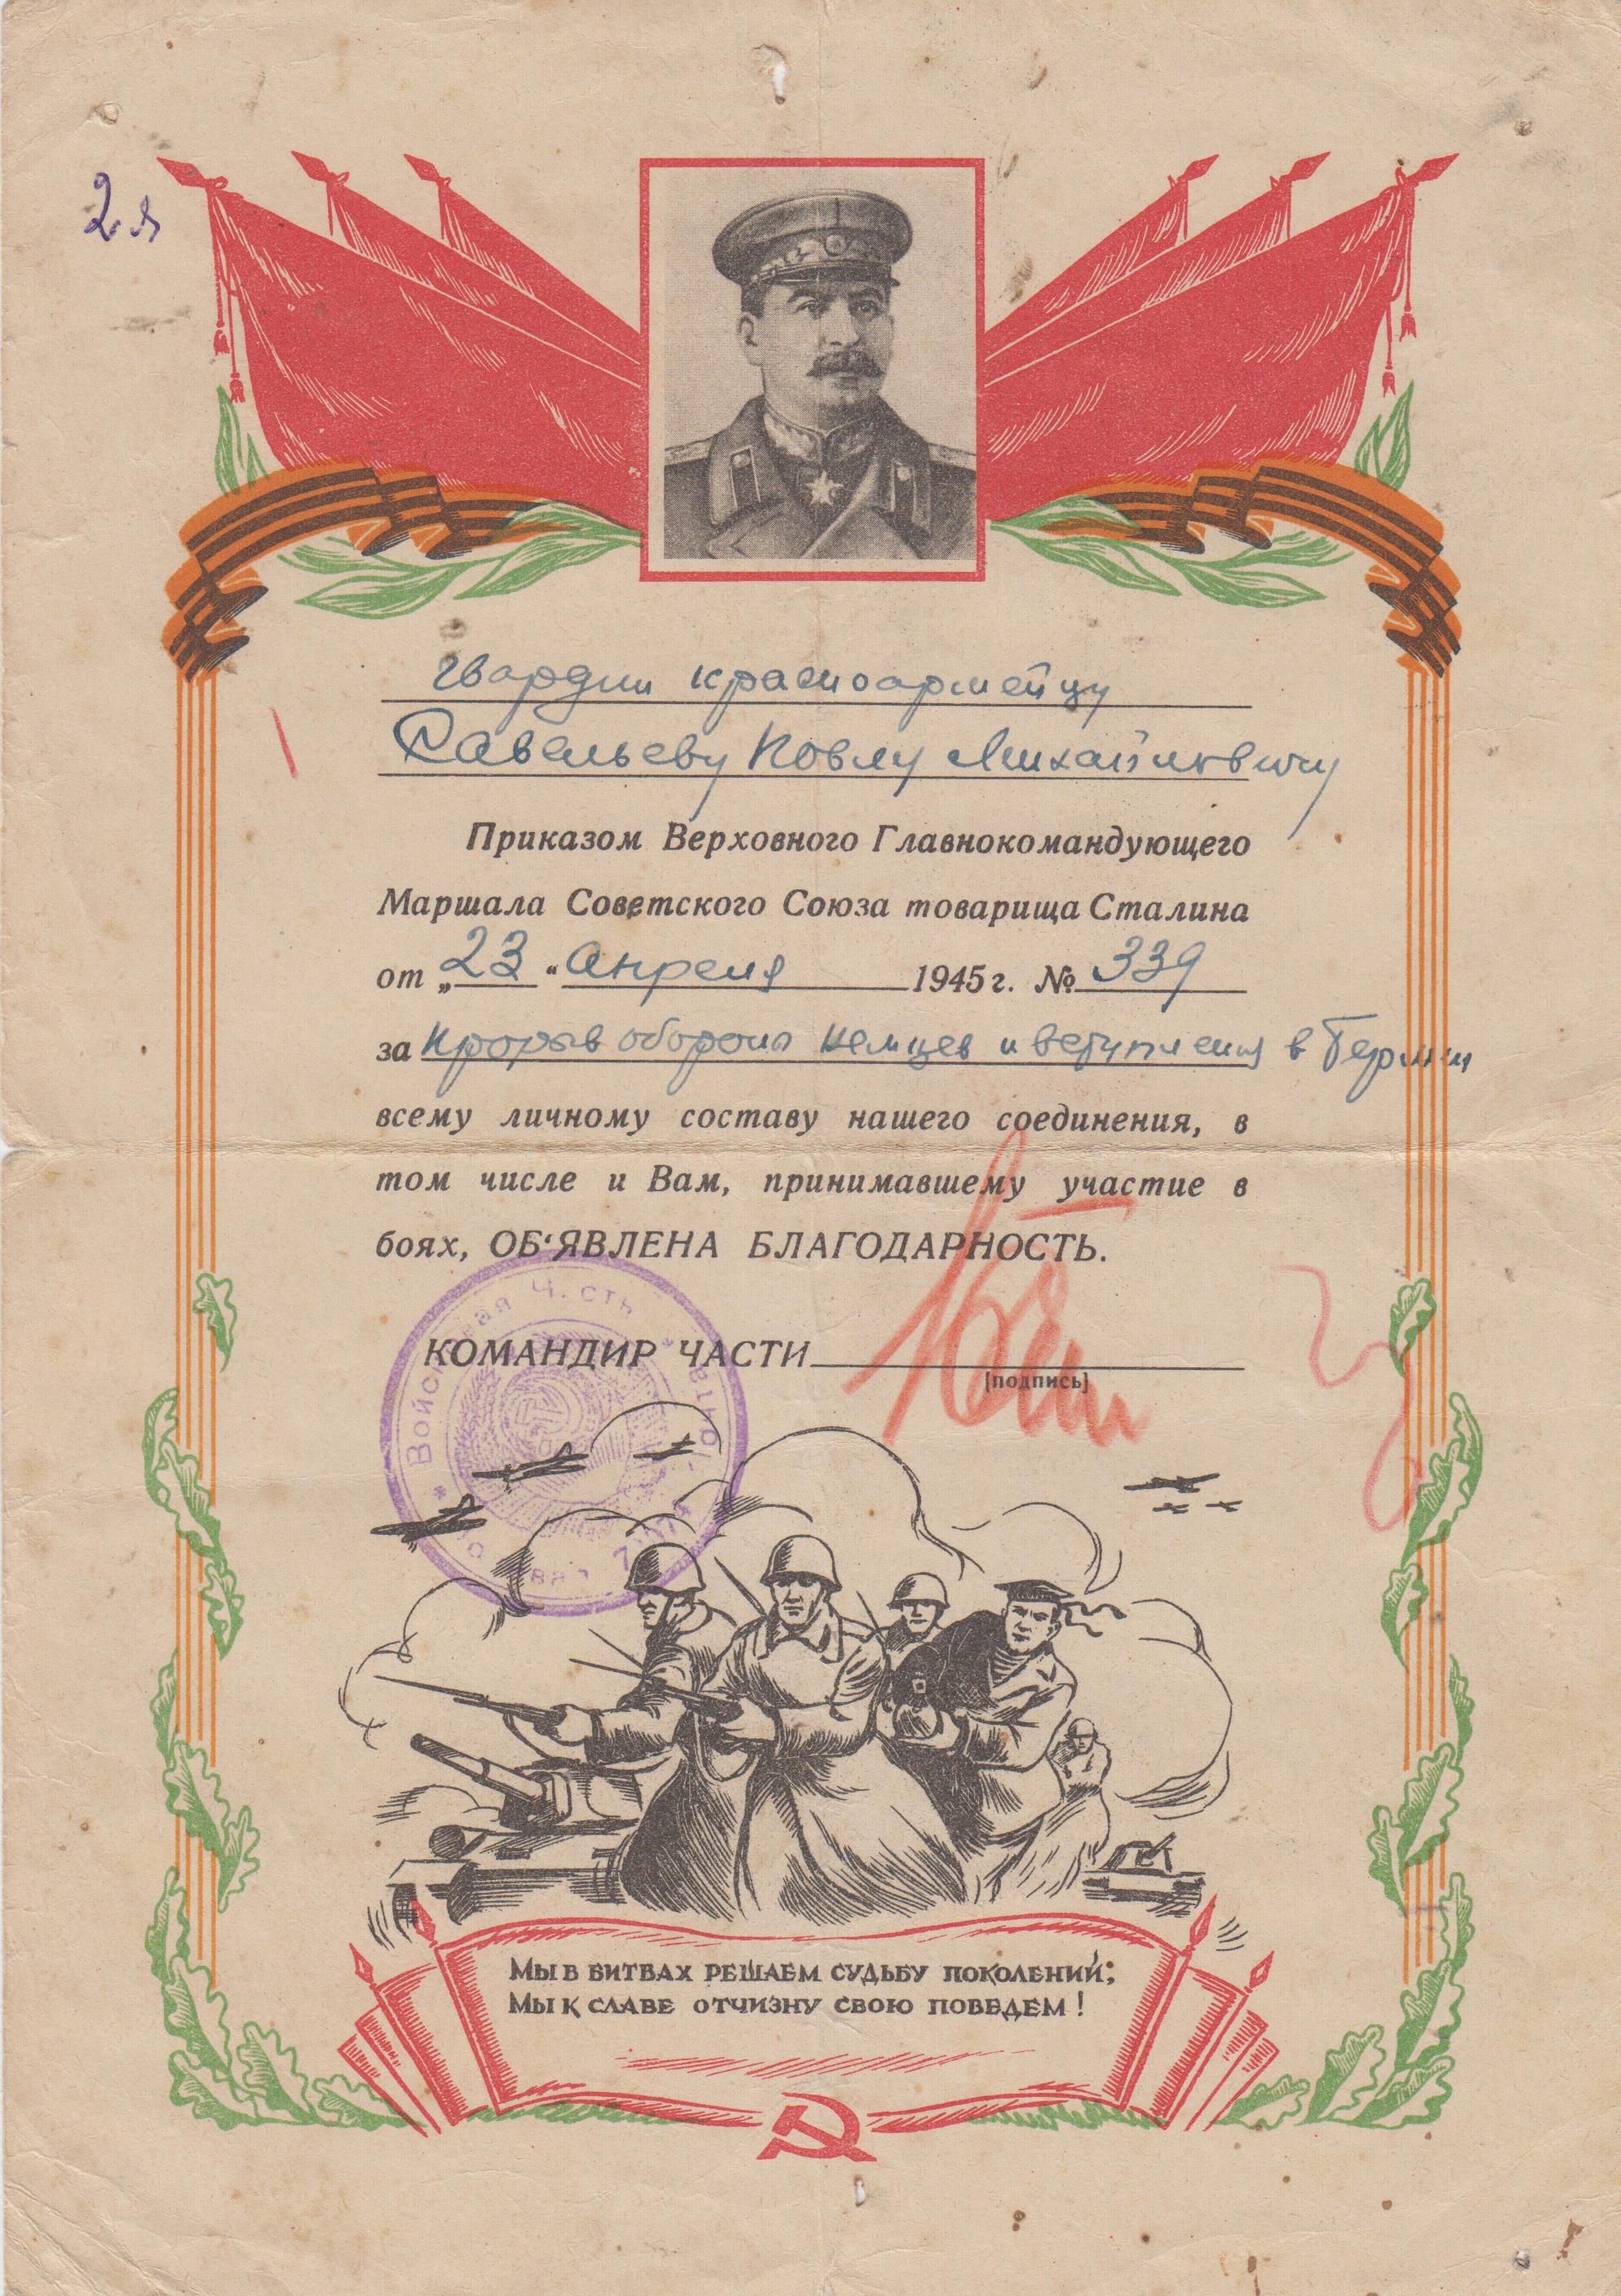 2я
гвардии красноармейцу
Савельеву Павлу Михайловичу
Приказом Верховного Главнокомандующего
Маршала Советского Союза товарища Сталина
от „23“ апреля 1945 г. № 339
за прорыв обороны немцев и вступления в Берлин
всему личному составу нашего соединения, в
том числе и Вам, принимавшему участие в
боях, ОБ‘ЯВЛЕНА БЛАГОДАРНОСТЬ.
КОМАНДИР ЧАСТИ
[подпись]
Войсковая Часть
МЫ В БИТВАХ РЕШАЕМ СУДЬБУ ПОКОЛЕНИЙ;
МЫ К СЛАВЕ ОТЧИЗНУ СВОЮ ПОВЕДЕМ!